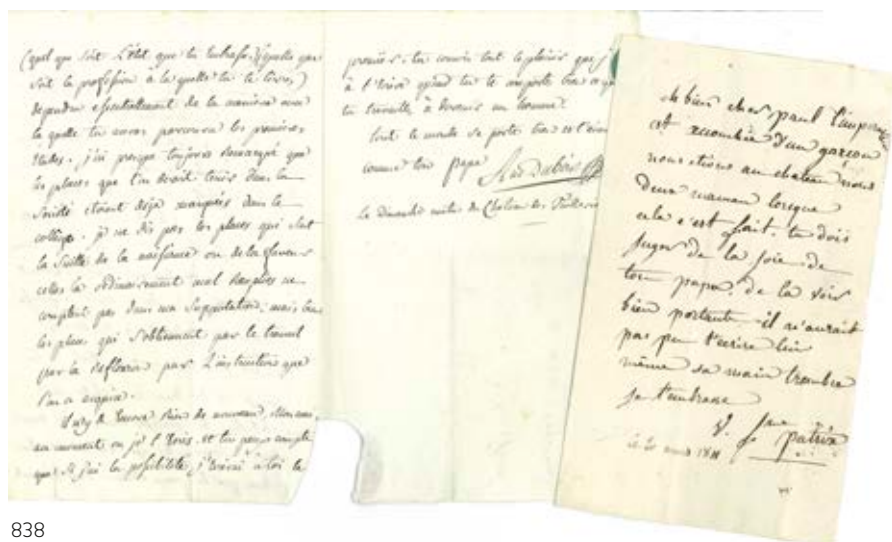 (quel que soit l'état que tu embrasses, quelle que
soit la profession à la quelle tu te livres,)
dependra essentiellement de la maniere avec
la quelle tu auras parcouru les premieres
études. j'ai presque toujours remarqué que
les places que l'on devait tenir dans la
société etaient deja marquées dans le
college. je ne dis pas les places qui sont
la suite de la naissance ou de la faveur
celles la ordinairement mal remplies ne
comptent pas dans ma supputation; mais
les places qui s'obtiennent par le travail
par la reflexion par l'instruction que
l'on a acquise.
rien de nouveau, mon ami,
au moment ou je t'ecris. et tu peux compter
que si j'ai la possibilité, j'ecrirai à toi le
premier. tu connais tout le plaisir que j'
à t'ecrire quand tu te comporte bien et que
tu travaille à devenir un homme.
tout le monde se porte bien et t'aime
comme ton papa
Ant Dubois
Le Dimanche matin du Chateau des Tuileries
eh bien cher paul l'imperatrice
est accouchée d'un garçon
nous etions au chateau nous
deux maman lorsque
cela c'est fait. tu dois
juger de la joie de
ton papa de la voir
bien portante il n'aurait
pas pu t'ecrire lui
même sa main tremble
je t'embrasse
patrix
le 20 mars 1811
838